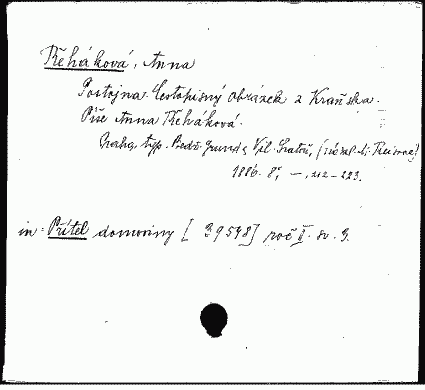 Řeháková, Anna
Postojna. Cestopisný obrázek z Kraňska.
Píše Anna Řeháková.
Praha, typ. Bedř. Grund & Vil. Svatoň,
1886. 8°, —, 212-223.
in: Přítel domoviny [39578] roč II. sv. 3.